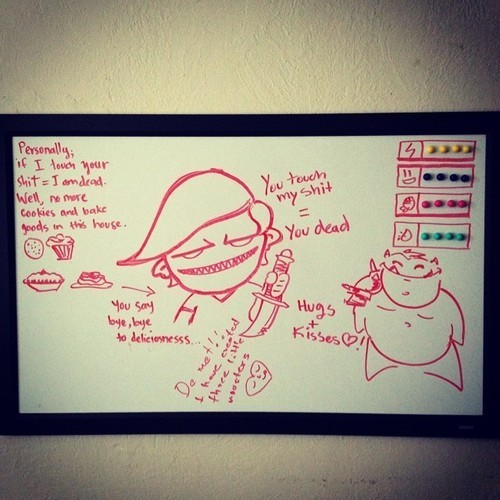 Personally,
if I touch your
shit = I am dead.
Well, no more
cookies and bake
goods in this house.
You touch
my shit
=
You dead
You say
bye, bye
to deliciousnesss...
Hugs
+
Kisses !
Do met!!!
I have created
three little
monsters